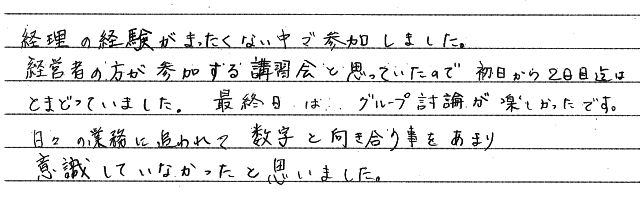 経理の経験がまったくない中で参加しました。
経営者の方が参加する講習会と思っていたので初日から2日目迄は
とまどっていました。最終日は、グループ討論が楽しかったです。
日々の業務に追われて数字と向き合う事をあまり
意識していなかったと思いました。